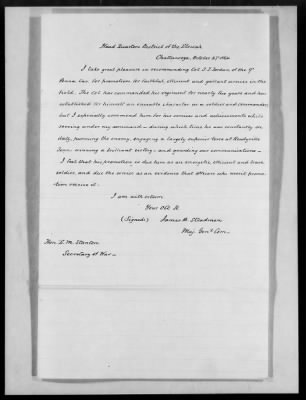 Head Quarters District of the Etowah
Chattanooga, October 25th 1864
I take great pleasure in recommending Col. T. J. Jordan of the 9th
Penna Cav. for promotion for faithful, efficient and gallant service in the
field. The Col. has commanded his regiment for nearly two years and has
established for himself an enviable character as a soldier and commander,
but I especially commend him for his services and achievements while
serving under my command — during which time he was constantly on
duty, pursuing the enemy, engaging a largely superior force at Readyville
Tenn, winning a brilliant victory — and guarding our communications —
I feel that his promotion is due him as an energetic, efficient and brave
soldier, and due the service as an evidence that officers who merit promo-
tion receive it.
I am with esteem
Your Obt St.
(Signed) James B. Steedman
Maj. Genl Com—
Hon. E. M. Stanton
Secretary of War—